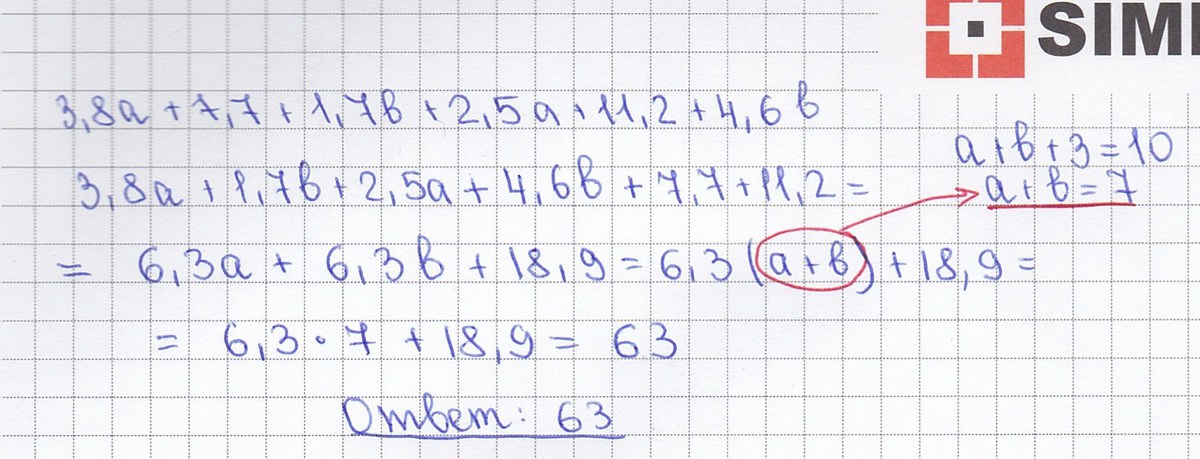 SIMI
3,8a + 7,7 + 1,7b + 2,5a + 11,2 + 4,6b
a + b + 3 = 10
3,8a + 1,7b + 2,5a + 4,6b + 7,7 + 11,2 =
a + b = 7
= 6,3a + 6,3b + 18,9 = 6,3 (a + b) + 18,9 =
= 6,3 · 7 + 18,9 = 63
Ответ: 63